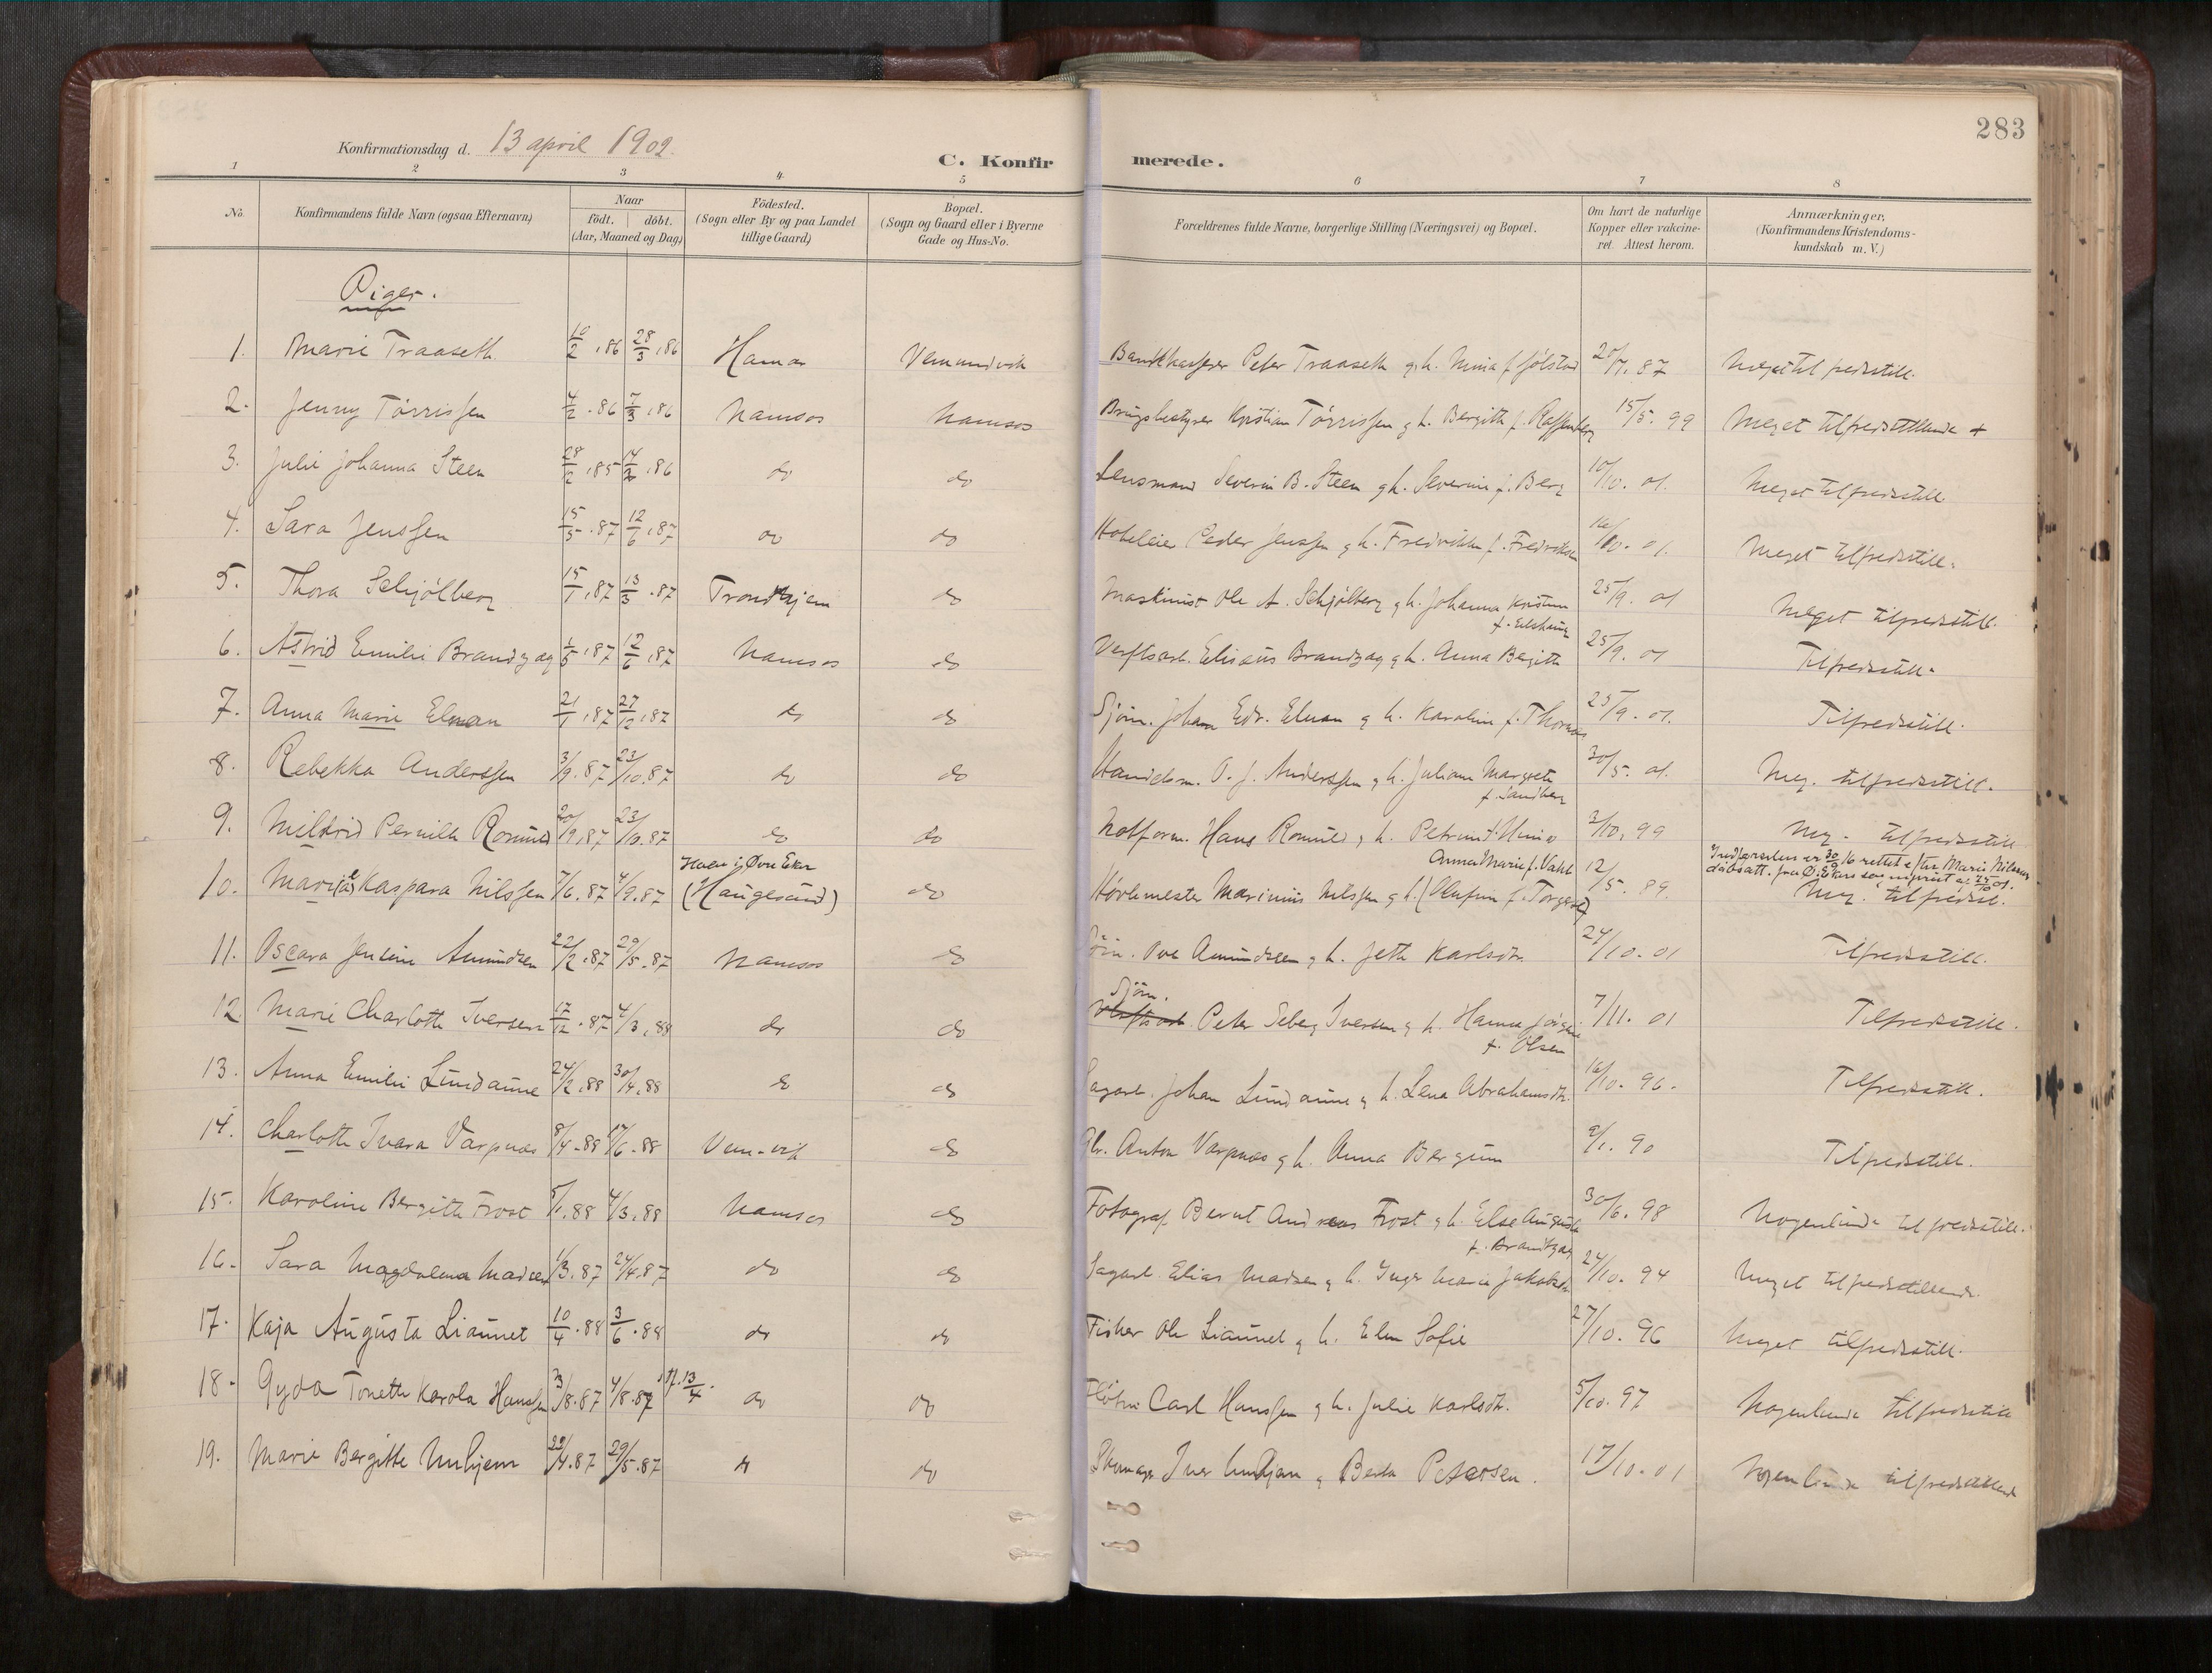 283
Konfirmationsdag d. 13 april 1902.
C. Konfirmerede.
1 2 3 4 5 6 7 8
No.
Konfirmandens fulde Navn (ogsaa Efternavn)
Naar
födt. döbt.
(Aar, Maaned og Dag)
Födested.
(Sogn eller By og paa Landet
tillige Gaard)
Bopæl.
(Sogn og Gaard eller i Byerne
Gade og Hus-No.
Forældrenes fulde Navne, borgerlige Stilling (Næringsvei) og Bopæl.
Om havt de naturlige
Kopper eller vakcine-
ret. Attest herom.
Anmærkninger.
(Konfirmandens Kristendoms-
kundskab m. V.)
Piger.
1. Marie Traaseth 10/2 .86 28/3 .86 Hamar Vemundvik Bankkasserer Peter Traaseth g h. Mina f. Jølstad 20/7. 87 Meget tilfredsstill.
2. Jenny Tørrissen 4/2 .86 7/3 .86 Namsos Namsos Brugsbestyrer Kristian Tørrissen g h. Bergitte f. 15/5. 99 Meget tilfredsstillende +
3. Julie Johanna Steen 28/12 .85 14/3 .86 do do Lensmand Severin B. Steen g h. Severine f. Berg 10/10. 01. Meget tilfredsstill.
4. Sara Jenssen 15/5 .87 12/6 .87 do do Hoteleier Peder Jenssen g h. Fredrikke f. Fredriksen 16/10. 01. Meget tilfredsstill.
5. Thora Schjölberg 15/1 .87 13/3 .87 Trondhjem do Maskinist Ole A. Schjölberg g h. Johanna Kristine
25/9. 01 Meget tilfredsstill.
6. Astrid Emilie Brandzag 1/5 .87 12/6 .87 Namsos do Verftsarb. Elisæus Brandzag g h. Anna Bergitte 25/9. 01 Tilfredsstill.
7. Anna Marie Elman 21/1 .87 27/12 .87 do do Sjöm. Johan Edv. Elman g h. Karoline f. Thomas 25/9. 01. Tilfredsstill.
8. Rebekka Anderssen 3/9. 87 23/10. 87 do do Handelsm. O. J. Anderssen g h. Juliane Margrete
f. Sandberg 30/5. 01. Meg. tilfredsstill.
9. Mildrid Pernille Romuld 20/9. 87 23/10. 87 do do Notform. Hans Romuld g h. Petrine 3/10. 99 Meg. tilfredsstill
Holen i Øvre Eker
Anna Marie f. Vahl
Indførselen er 30/9 16 rettet efter Marie Nilssens
dåbsatt. fra Ø. Eker
10. Marie Kaspara Nilssen 7/6. 87 4/9. 87 (Haugesund) do Hövlemester Marinius Nilssen g h. (Olufine f. Torgersd) 12/5. 89. Meg. tilfredsst.
11. Oscara Jensine Amundsen 22/2. 87 29/5. 87 Namsos do Sjöm. Ove Amundsen g h. Jette Karlsdtr. 24/10. 01 Tilfredsstill.
Sjöm.
12. Marie Charlotte Iversen 17/12 . 87 4/3. 88 do do Verftsarb. Peter Seberg Iversen g h. Hanna
f. Olsen 7/11. 01 Tilfredsstill.
13. Anna Emilie Lundamne 24/2. 88 30/4. 88 do do Sagarb. Johan Lundamne g h. Lena Abrahamsdtr. 16/10. 96. Tilfredsstill.
14. Charlotte Ivara Varpnæs 8/4. 88 17/6. 88 Vem-vik do Gbr. Anton Varpnæs g h. Anna Bergum 9/1. 90 Tilfredsstill.
15. Karoline Bergitte Frost 5/1. 88 4/3. 88 Namsos do Fotograf Bernt Andreas Frost g h. Else Augusta
f. Brandtzag 30/6. 98 Nogenlunde tilfredsstill.
16. Sara Magdalena Madsen 1/3. 87 24/4. 87 do do Sagarb. Elias Madsen g h. Inger Marie Jakobsd. 24/10. 94 Meget tilfredsstillende.
17. Kaja Augusta Liaunet 10/4 . 88 3/6 . 88 do do Fisker Ole Liaunet g h. Elen Sofie 27/10. 96 Meget tilfredsstill.
18. Gyda Tonette Karola Hanssen 3/8. 87 4/8. 87 13/4. do do Carl Hanssen g h. Julie Karlsdtr. 5/10. 97 Nogenlunde tilfredsstill
19. Marie Bergitte Umhjem 22/4. 87 29/5. 87 do do Skomager Iver Umhjem g Berta Petersen. 17/10. 01 Nogenlunde tilfredsstillende